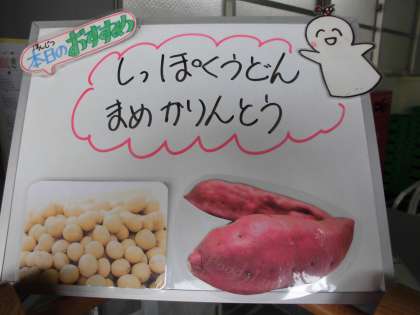 ほんじつ
本日のおすすめ
しっぽくうどん
まめかりんとう